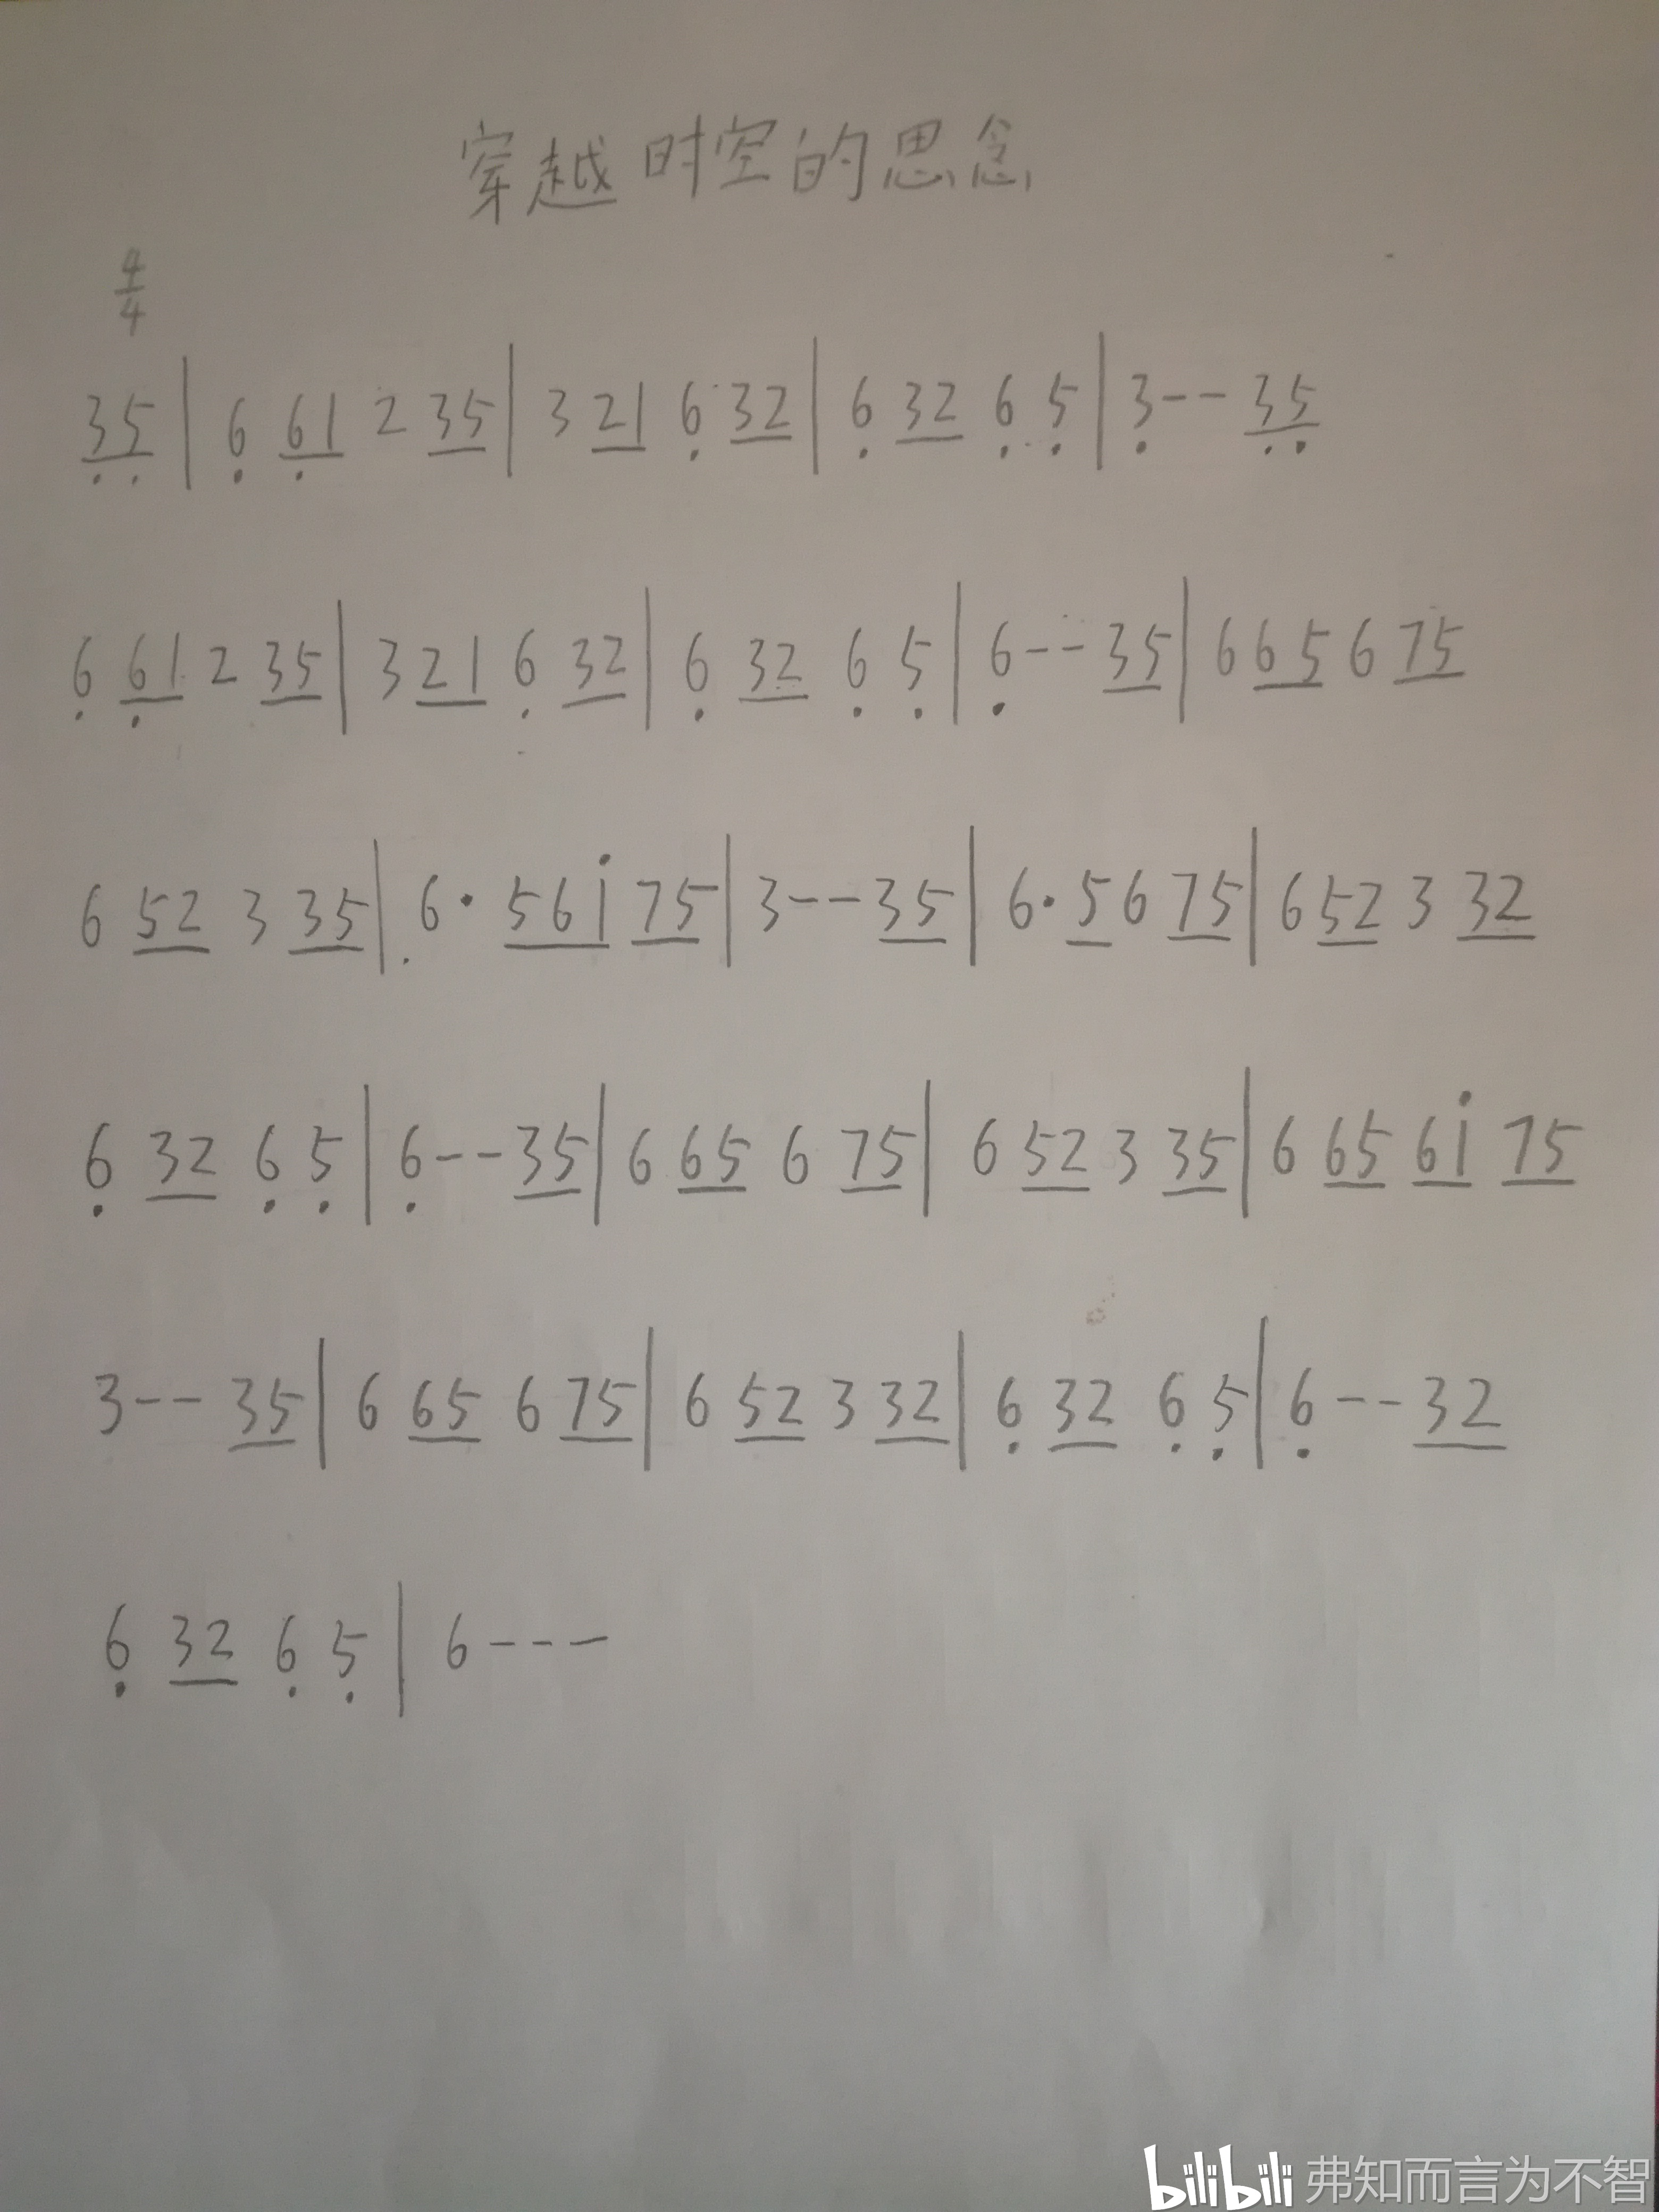 穿越时空的思念
4/4
35 | 6 61 2 35 | 3 21 6 32 | 6 32 6 5 | 3-- 35
6 61 2 35 | 3 21 6 32 | 6 32 6 5 | 6-- 35 | 6 65 6 75
6 52 3 35 | 6· 56i 75 | 3--35 | 6·5 6 75 | 6 52 3 32
6 32 6 5 | 6--35 | 6 65 6 75 | 6 52 3 35 | 6 65 6i 75
3-- 35 | 6 65 6 75 | 6 52 3 32 | 6 32 6 5 | 6--32
6 32 6 5 | 6---
bilibili 弗知而言为不智